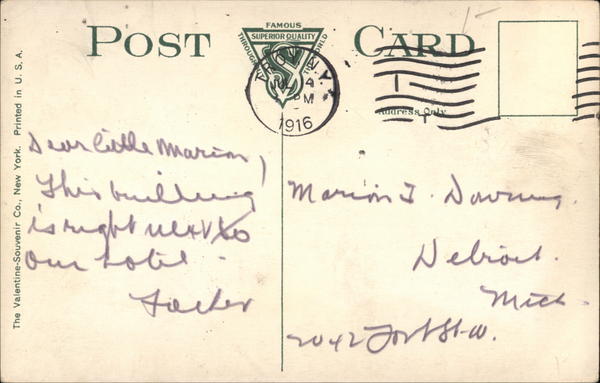 POST CARD
FAMOUS
SUPERIOR QUALITY
THROUGHOUT THE WORLD
VS
TROY, N.Y.
JUL 4
PM
1916
Address Only
Dear little Marion,
This building
is right next to
our hotel.
Father
Marion I.
Detroit.
Mich
2042 Fort St. W.
The Valentine-Souvenir Co., New York. Printed in U. S. A.